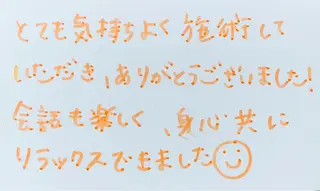 とても気持ちよく施術して
いただき、ありがとうございました!
会話も楽しく、身心共に
リラックスできました